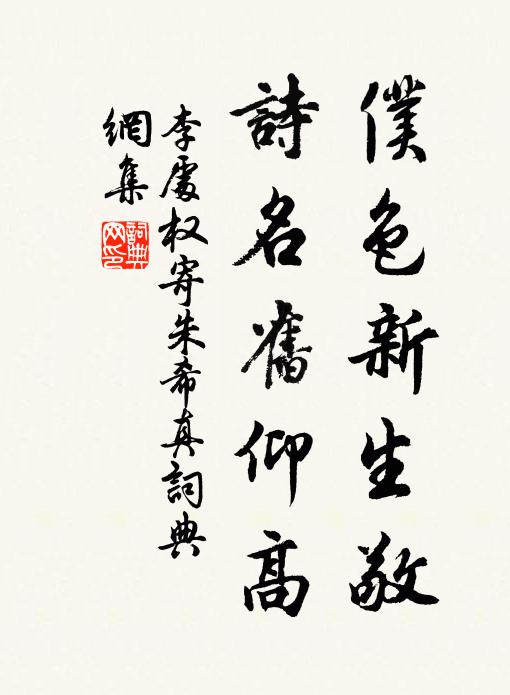 僕色新生敬
詩名舊仰高
李處权寄朱希真詞典
網集
詞典网印